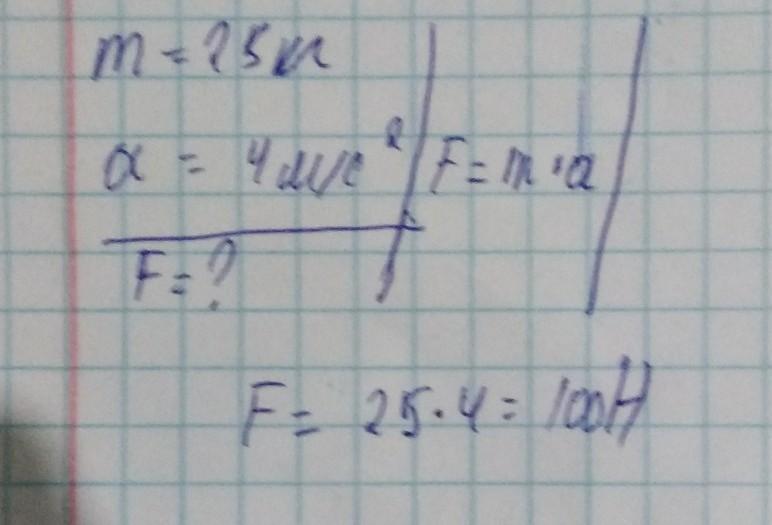 m = 25 кг
a = 4 м/с²
F = m · a
F = ?
F = 25 · 4 = 100 Н